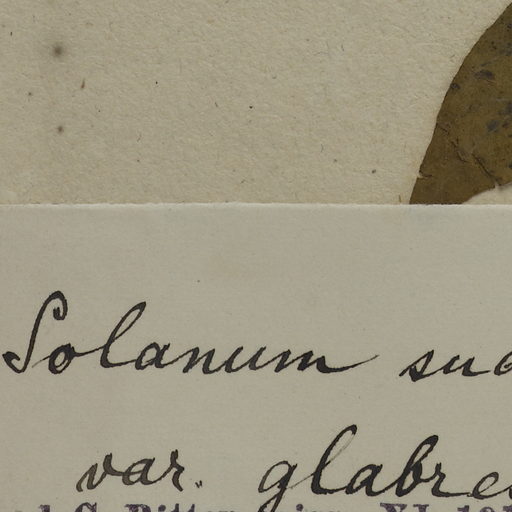 Solanum sua
var. glabres
G. Bitter
XI. 19